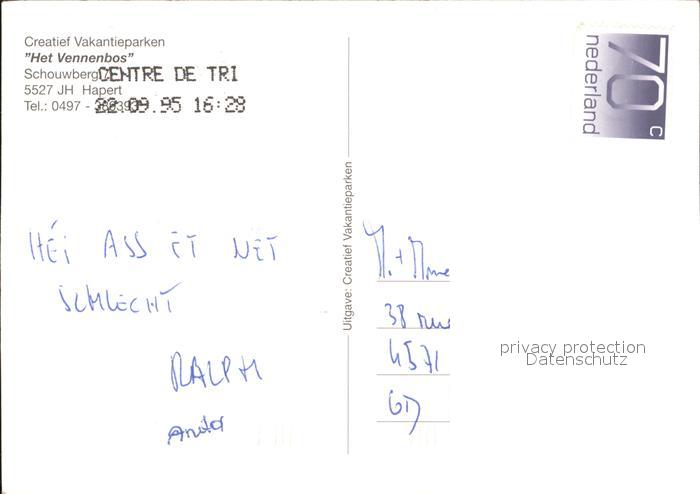 Creatief Vakantieparken
"Het Vennenbos"
Schouwberg
CENTRE DE TRI
5527 JH Hapert
Tel.: 0497 -
22.09.95 16:28
HÉI ASS ET NET
SCHLECHT
RALPH
Anita
Uitgave: Creatief Vakantieparken
70 c
nederland
M. + Mme
38 rue
4571
GD
privacy protection
Datenschutz